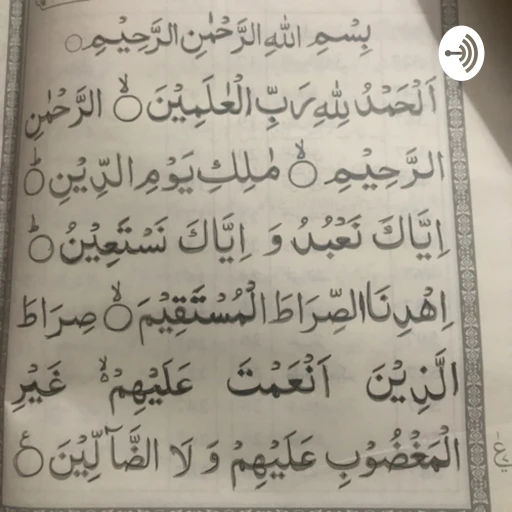 بِسْمِ اللهِ الرَّحْمٰنِ الرَّحِيْمِ ۝
اَلْحَمْدُ لِلّٰهِ رَبِّ الْعٰلَمِيْنَ ۝ۙ الرَّحْمٰنِ
الرَّحِيْمِ ۝ۙ مٰلِكِ يَوْمِ الدِّيْنِ ۝ؕ
اِيَّاكَ نَعْبُدُ وَ اِيَّاكَ نَسْتَعِيْنُ ۝ؕ
اِهْدِنَا الصِّرَاطَ الْمُسْتَقِيْمَ ۝ۙ صِرَاطَ
الَّذِيْنَ اَنْعَمْتَ عَلَيْهِمْ ۙ۬ غَيْرِ
الْمَغْضُوْبِ عَلَيْهِمْ وَ لَا الضَّآلِّيْنَ ۝